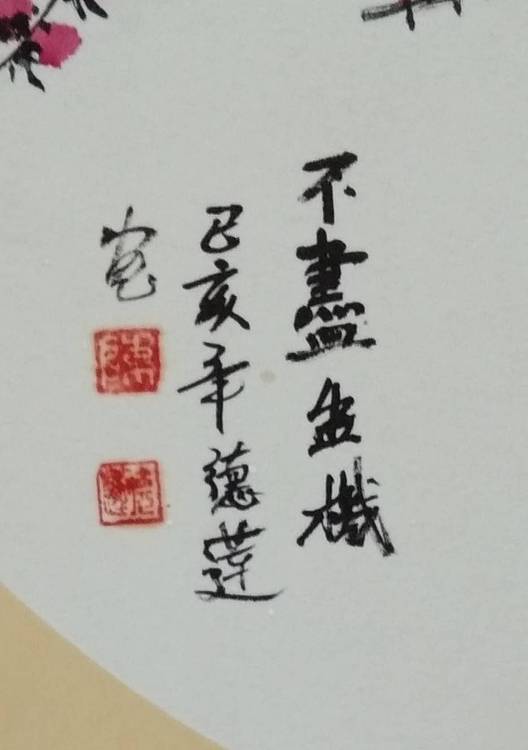 不盡生機
己亥年德蓮
寫
陳